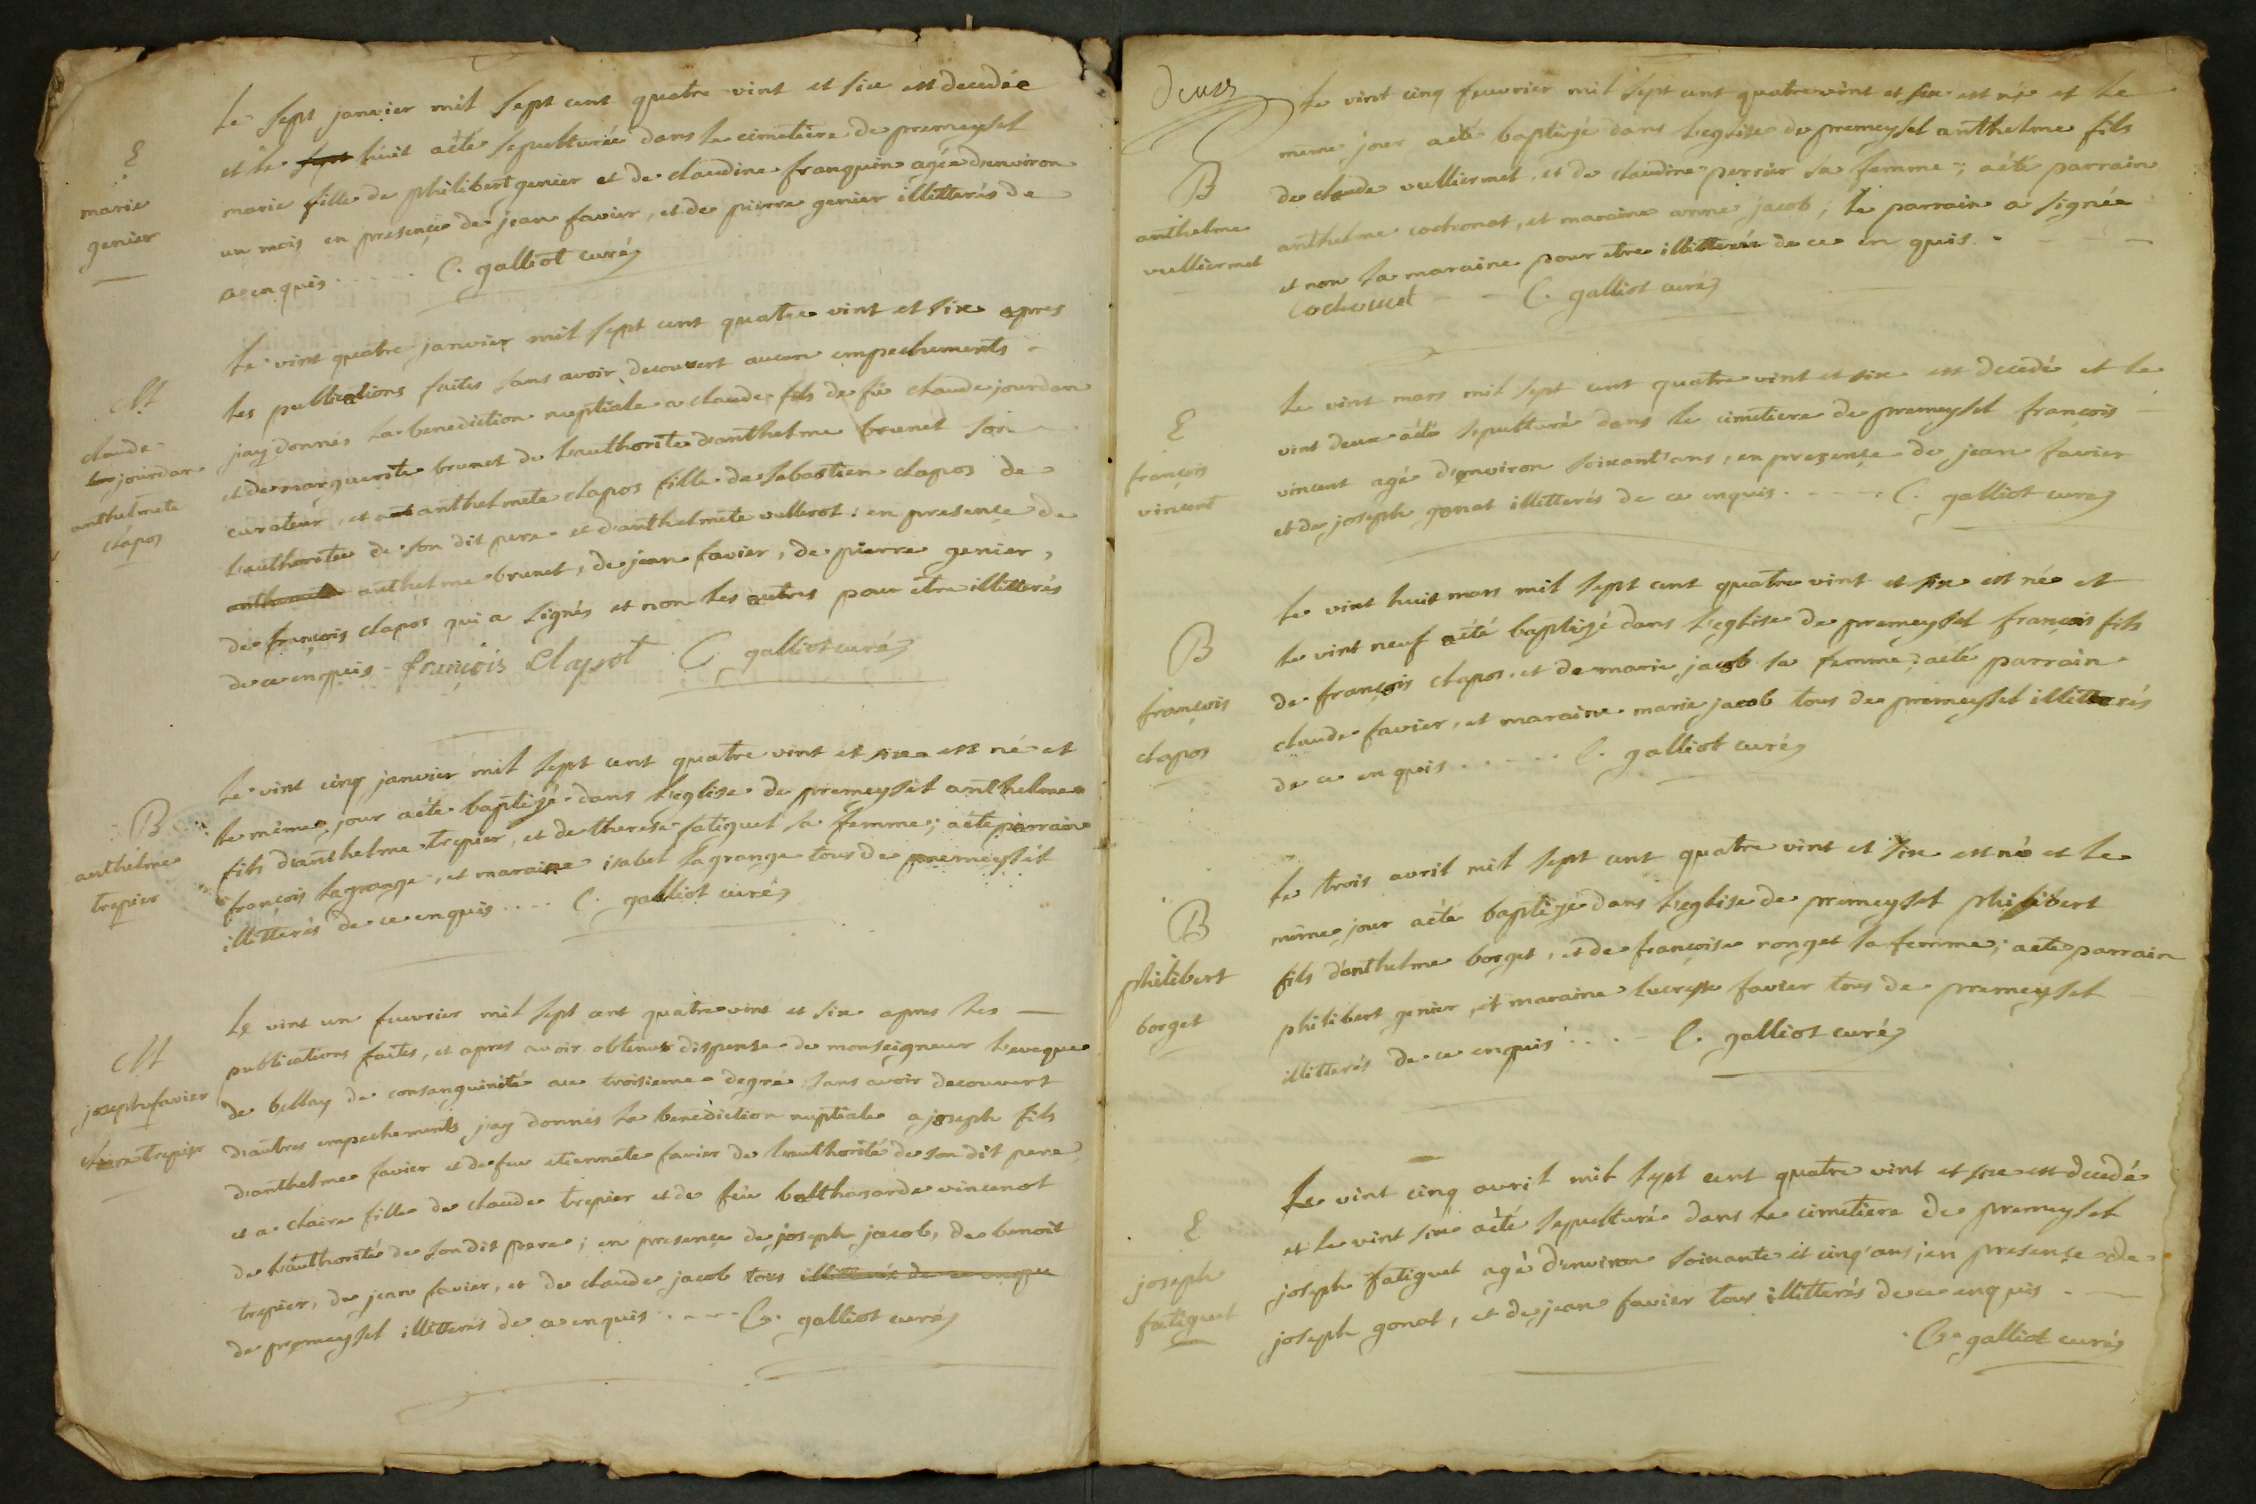 E
marie
genier
Le sept janvier mil sept cent quatre vint et six est decedée
et le sept huit aété sepulturée dans le cimetiere de premeysel
marie fille de philibert genier et de claudine franquin agée d'environ
un mois en presençe de jean favier, et de pierre genier illitterés de
ce enquis . . . . C. galliot curé
M
claude
jourdan
anthelmete
clapos
Le vint quatre janvier mil sept cent quatre vint et six apres
les publications faites sans avoir decouvert aucun empechements
jay donnés la benediction nuptiale a claude fils de fu claude jourdan
et de marguerite brunet de l'authorité d'anthelme brunet son
curateur, et anthelmete clapos fille de sebastien clapos de
l'authoritée de son dit pere et d'anthelmete vullerot : en presençe de
anthelme brunet, de jean favier, de pierre genier,
de françois clapos qui a signés et non les autres pour etre illitterés
de ce enquis - françois Clapot C galliot curé
B
anthelme
trepier
Le vint cinq janvier mil sept cent quatre vint et six est né et
le même jour aété baptizé dans l'eglise de premeysel anthelme
fils d'anthelme trepier, et de therese fatiguet sa femme; aété parrain
françois lagrange, et maraine isabel lagrange tous de premeysel
illitterés de ce enquis . . . . C. galliot curé
M
joseph favier
claire trepier
Le vint un feuvrier mil sept cent quatre vint et six apres les
publications faites, et apres avoir obtenus dispense de monseigneur l'eveque
de bellay de consanguinité au troisieme degré sans avoir decouvert
d'autres empechements jay donnés la benediction nuptiale a joseph fils
d'anthelme favier et de feu etiennete favier de l'authorité de son dit pere
et a claire fille de claude trepier et de feue balthasarde vincenot
de l'authorité de son dit pere; en presençe de joseph jacob, de benoit
trepier, de jean favier, et de claude jacob tous illitterés de ce enquis
de premeysel illitterés de ce enquis . . . . C. galliot curé
deux
B
anthelme
vulliermet
Le vint cinq feuvrier mil sept cent quatre vint et six est né et le
meme jour aété baptizé dans l'eglise de premeysel anthelme fils
de claude vulliermet, et de claudine perrier sa femme; aété parrain
anthelme cochonat, et maraine anne jacob; le parrain a signée
et non la maraine pour etre illitterée de ce en quis.
C. galliot curé
E
françois
vincent
Le vint mars mil sept cent quatre vint et six est decedé et le
vint deux aété sepulturé dans le cimetiere de premeysel françois
vincent agé d'environ soixant'ans, en presençe de jean favier
et de joseph gonat illitterés de ce enquis . . . . C. galliot curé
B
françois
clapos
Le vint huit mars mil sept cent quatre vint et six est né et
le vint neuf aété baptizé dans l'eglise de premeysel françois fils
de françois clapos, et de marie jacob sa femme; aété parrain
claude favier, et maraine marie jacob tous de premeysel illitterés
de ce en quis . . . . . C. galliot curé
B
philibert
borget
Le trois avril mil sept cent quatre vint et six est né et le
même jour aété baptizé dans l'eglise de premeysel philibert
fils d'anthelme borget, et de françoise ronget sa femme; aété parrain
philibert genier, et maraine lucresse favier tous de premeysel
illitterés de ce enquis . . . - C. galliot curé
E
joseph
fatiguet
Le vint cinq avril mil sept cent quatre vint et six est decedé
et le vint six aété sepulturé dans le cimetiere de premeysel
joseph fatiguet agé d'environ soixante et cinq ans, en presençe de
joseph gonat, et de jean favier tous illitterés de ce enquis .
C. galliot curé